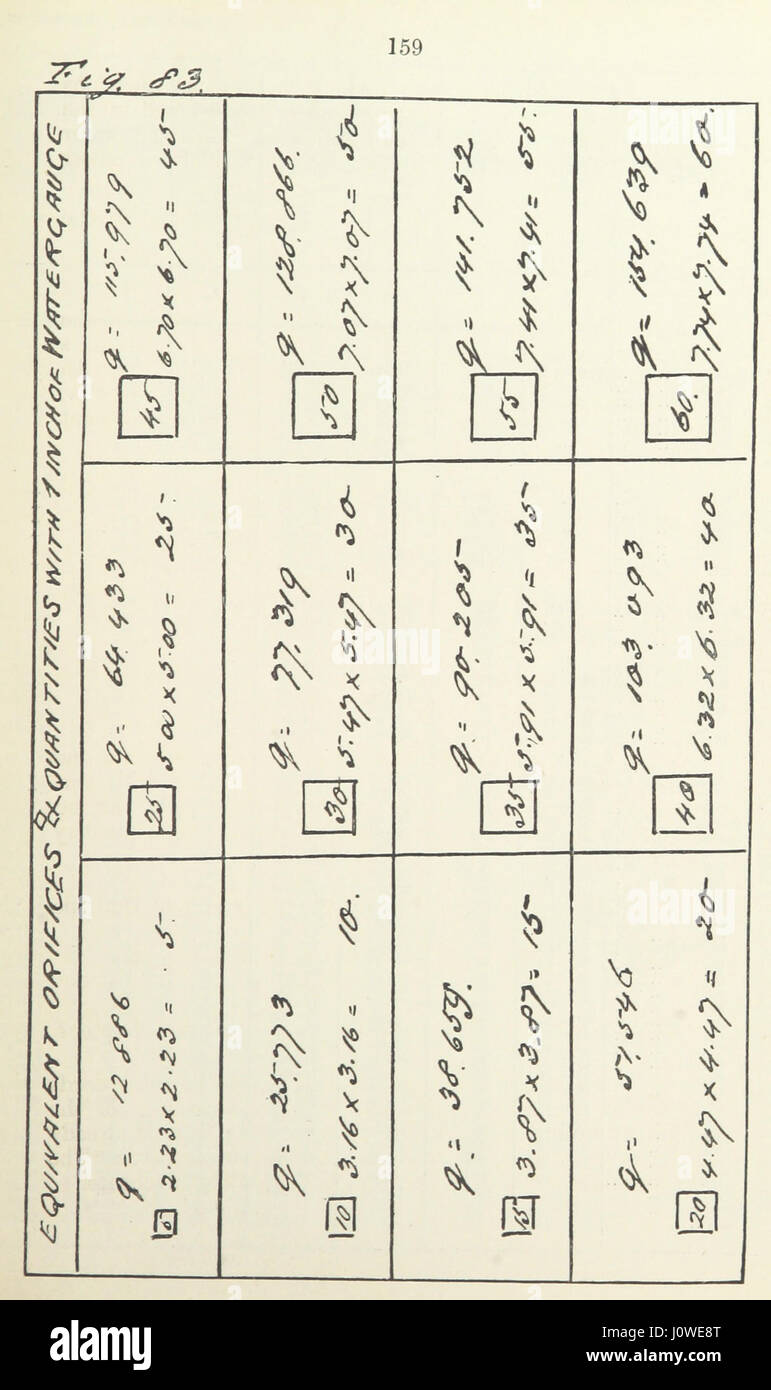 159
Fig. 83.
EQUIVALENT ORIFICES & QUANTITIES WITH 1 INCH OF WATERGAUGE
q = 12886
5 2.23 x 2.23 = 5.
q = 64.433
25 5.00 x 5.00 = 25.
q = 115.979
45 6.70 x 6.70 = 45
q = 25.773
10 3.16 x 3.16 = 10.
q = 77.319
30 5.47 x 5.47 = 30
q = 128.866.
50 7.07 x 7.07 = 50
q = 38.659.
15 3.87 x 3.87 = 15
q = 90.205
35 5.91 x 5.91 = 35
q = 141.752
55 7.41 x 7.41 = 55.
q = 57.546
20 4.47 x 4.47 = 20
q = 103.093
40 6.32 x 6.32 = 40
q = 154.639
60. 7.74 x 7.74 = 60.
alamy
Image ID: J0WE8T
www.alamy.com